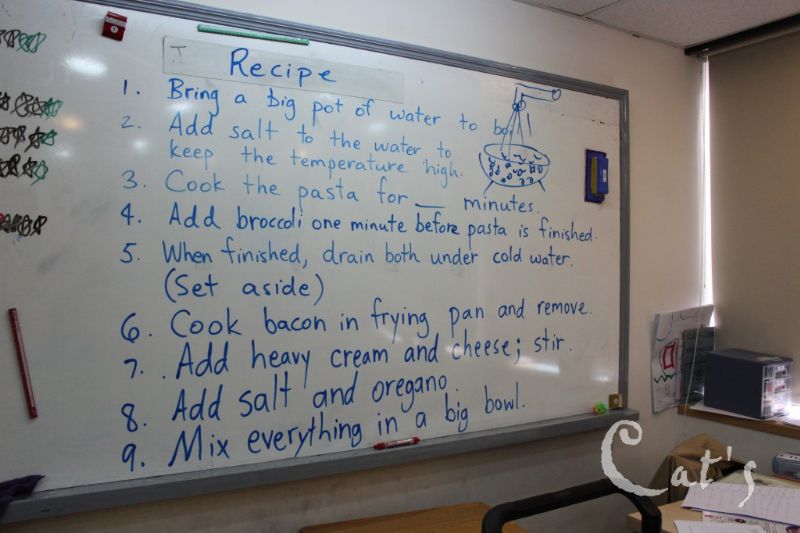 Recipe
1. Bring a big pot of water to boil
2. Add salt to the water to
keep the temperature high.
3. Cook the pasta for ___ minutes.
4. Add broccoli one minute before pasta is finished.
5. When finished, drain both under cold water.
(Set aside)
6. Cook bacon in frying pan and remove.
7. Add heavy cream and cheese; stir.
8. Add salt and oregano.
9. Mix everything in a big bowl.
Cat's